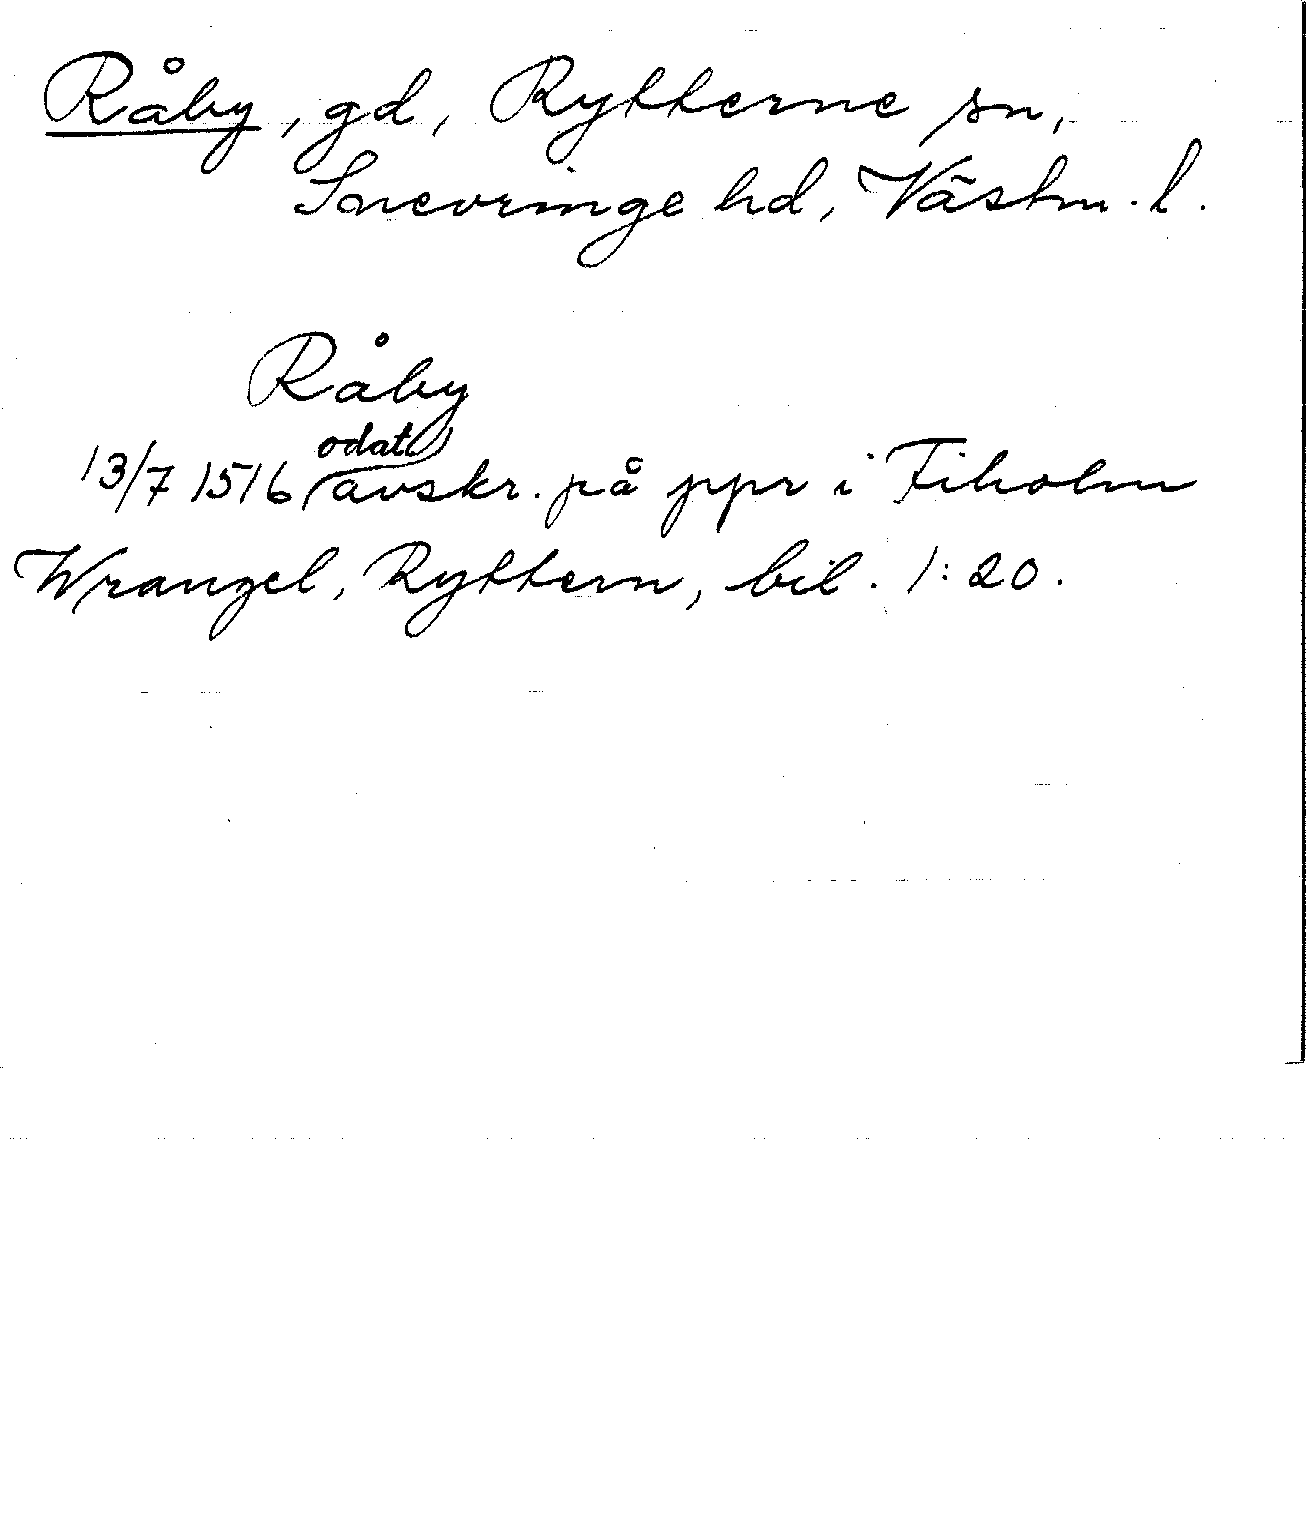 Råby, gd, Rytterne sn,
Snevringe hd, Västm. l.
Råby
13/7 1516 odat. avskr. på ppr i Fiholm
Wrangel, Ryttern, bil. 1:20.